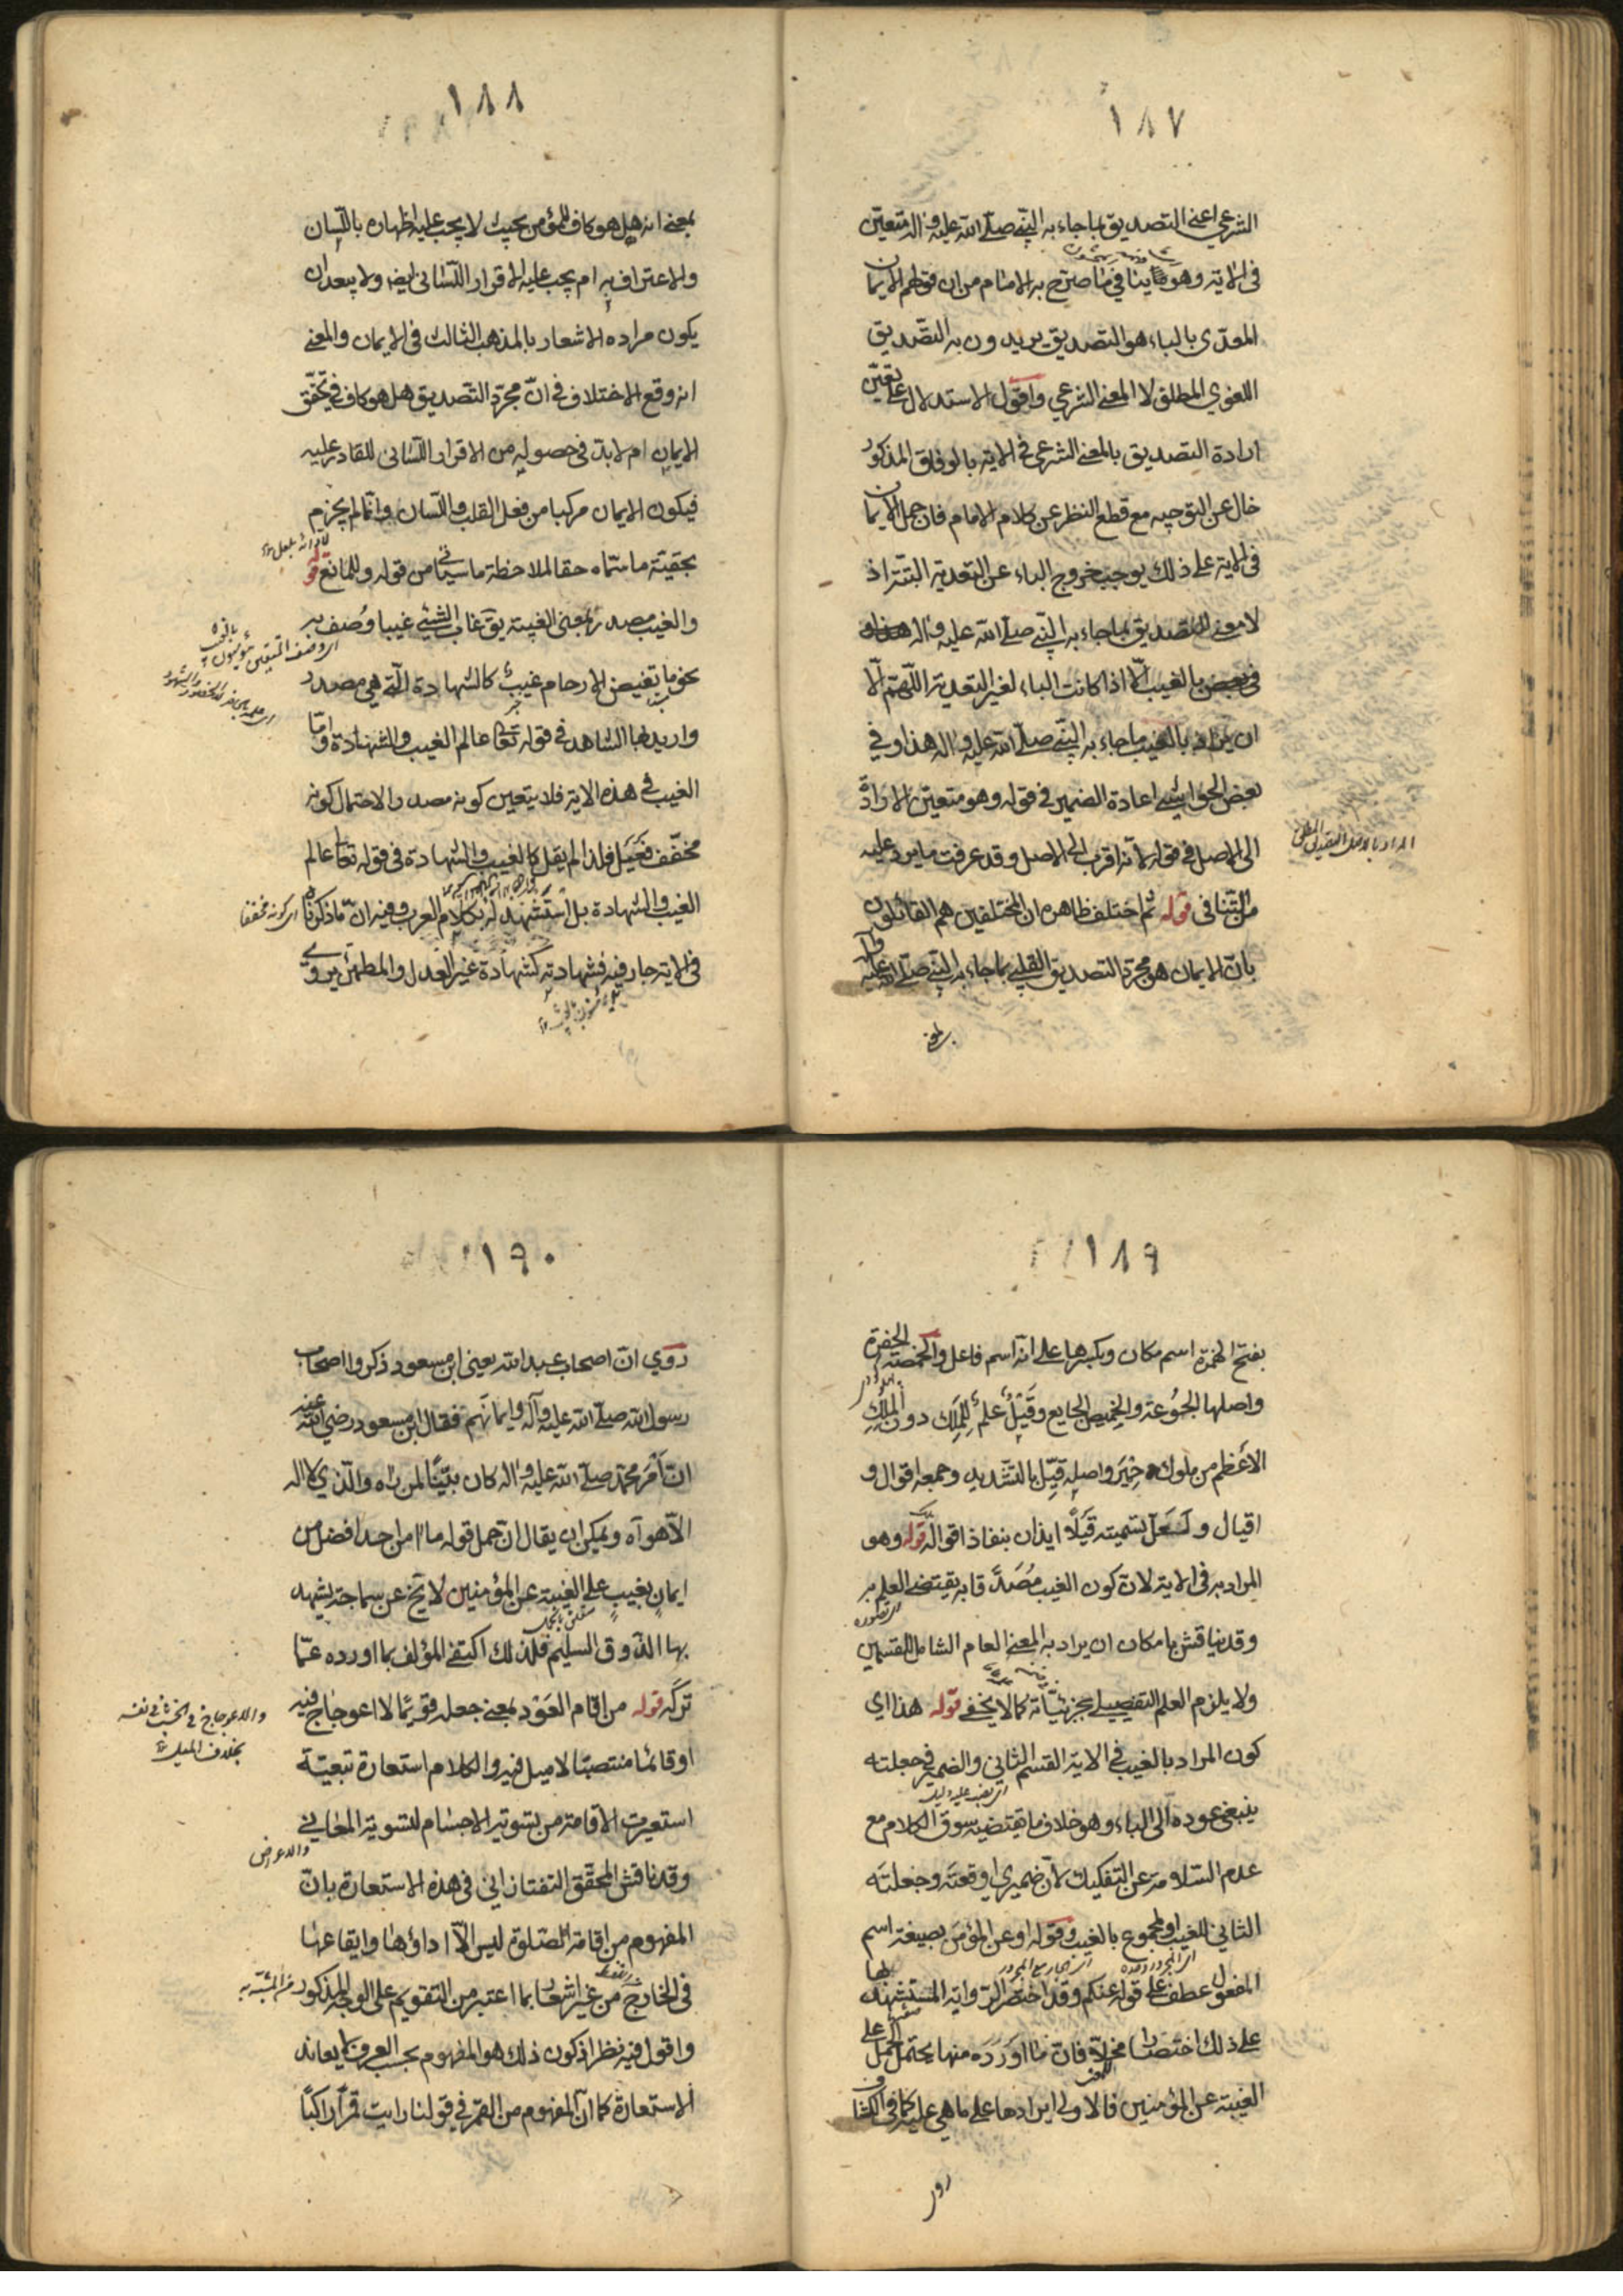 ١٨٧
الشرعي اعني التصديق بما جاء به النبي صلى الله عليه واله متعين
في الاية وهو ينافي ما صرح به الامام من ان قولهم الايمان
المعدى بالباء هو التصديق يريدون به التصديق
اللغوي المطلق لا المعنى الشرعي واقول الاستدلال على تعين
ارادة التصديق بالمعنى الشرعي في الاية بالوفاق المذكور
خال عن التوجيه مع قطع النظر عن كلام الامام فان حمل الايمان
في الاية على ذلك يوجب خروج الباء عن التعدية البتة اذ
لا معنى للتصديق بما جاء به النبي صلى الله عليه واله
بالغيب الا اذا كانت الباء لغير التعدية اللهم الا
ان يراد بالغيب ما جاء به النبي صلى الله عليه واله هذا وفي
بعض الحواشي اعادة الضمير في قوله وهو متعين الارادة
الى الاصل في قوله لانه اقرب الى الاصل وقد عرفت ما يرد عليه
من التنافي قوله ثم اختلف ظاهره ان المختلفين هم القائلون
بان الايمان هو مجرد التصديق القلبي بما جاء به النبي صلى الله عليه واله
بمعنى
١٨٨
بمعنى انه هل هو كاف للمؤمن بحيث لا يجب عليه اظهاره باللسان
والاعتراف به ام يجب عليه الاقرار اللساني ايضا ولا يبعد ان
يكون مراده الاشعار بالمذهب الثالث في الايمان والمعنى
انه وقع الاختلاف في ان مجرد التصديق هل هو كاف في تحقق
الايمان ام لابد في حصوله من الاقرار اللساني للقادر عليه
فيكون الايمان مركبا من فعل القلب واللسان وانما لم يجزم
بحقية ما سماه حقا لملاحظة ما سيأتي من قوله وللمانع قوله
والغيب مصدر بمعنى الغيبة يق غاب الشيء غيبا وصف به
نحو ما تغيض الارحام غيب كالشهادة التي هي مصدر
واريد بها الشاهد في قوله تعالى عالم الغيب والشهادة واما
الغيب في هذه الاية فلا يتعين كونه مصدرا لاحتمال كونه
مخفف فعيل فلذا لم يقل كالغيب والشهادة في قوله تعالى عالم
الغيب والشهادة بل استشهد له بكلام العرب وفيه ان ما ذكرناه
اي كونه مخففا
في الاية جار فيه فشهادته كشهادة غير العدل والمطمئن يروى
١٨٩
بفتح الهمزة اسم مكان وبكسرها على انه اسم فاعل والخمصة الحفرة
واصلها الجوعة والخميص الجايع وقيل علم للملك دون الملك
الاعظم من ملوك حمير واصله قيل بالتشديد وجمعه اقوال و
اقيال ولعل تسميته قيلا ايذان بنفاذ اقواله قوله وهو
المراد به في الاية لان كون الغيب مصدقا به يقتضي العلم به
وقد يناقش بامكان ان يراد به المعنى العام الشامل للقسمين
ولا يلزم العلم التفصيلي بجزئياته كما لا يخفى قوله هذا اي
كون المراد بالغيب في الاية القسم الثاني والضمير في جعلته
ينبغي عوده الى الباء وهو خلاف ما يقتضيه سوق الكلام مع
عدم السلامة عن التفكيك لان ضميري اوقعته وجعلته
الثاني للغيب او المجموع بالغيب وقوله او عن المؤمن بصيغة اسم
المفعول عطف على قوله عنكم وقد اختصر الرواية المستشهد بها
على ذلك اختصارا مخلا فان ما اورده منها يحتمل الحمل على
الغيبة عن المؤمنين فالاولى ايرادها على ما هي عليه كما في الكشاف
روى
١٩٠
روي ان اصحاب عبد الله يعني ابن مسعود ذكروا اصحاب
رسول الله صلى الله عليه وآله وايمانهم فقال ابن مسعود رضي الله عنه
ان امر محمد صلى الله عليه واله كان بينا لمن راه والذي لا اله
الا هو آه ويمكن ان يقال ان حمل قوله ما امن احد افضل من
ايمان بغيب على الغيبة عن المؤمنين لا يخ عن سماجة يشهد
بها الذوق السليم فلذلك اكتفى المؤلف بما اورده عما
تركه قوله من اقام العود بمعنى جعله قويما لا اعوجاج فيه
والاعوجاج في الخشب في نفسه
بخلاف الميل
او قائما منتصبا لا ميل فيه والكلام استعارة تبعية
استعيرت الاقامة من تسوية الاجسام لتسوية المعاني
وقد ناقش المحقق التفتازاني في هذه الاستعارة بان
المفهوم من اقامة الصلوة ليس الا اداؤها وايقاعها
في الخارج من غير اشعار بما اعتبر من التقويم على الوجه المذكور
في المشبه به
واقول فيه نظر اذ كون ذلك هو المفهوم بحسب العرف لا يعاند
الاستعارة كما ان المفهوم من القمر في قولنا رايت قمرا راكبا